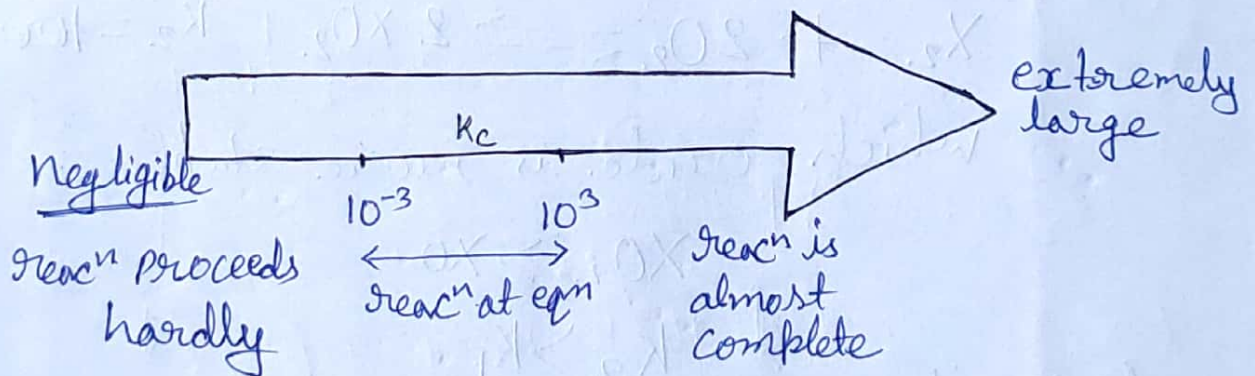 extremely
large
Kc
Negligible
10⁻³ 10³
reacⁿ proceeds
hardly
reacⁿ at eqⁿ
reacⁿ is
almost
complete